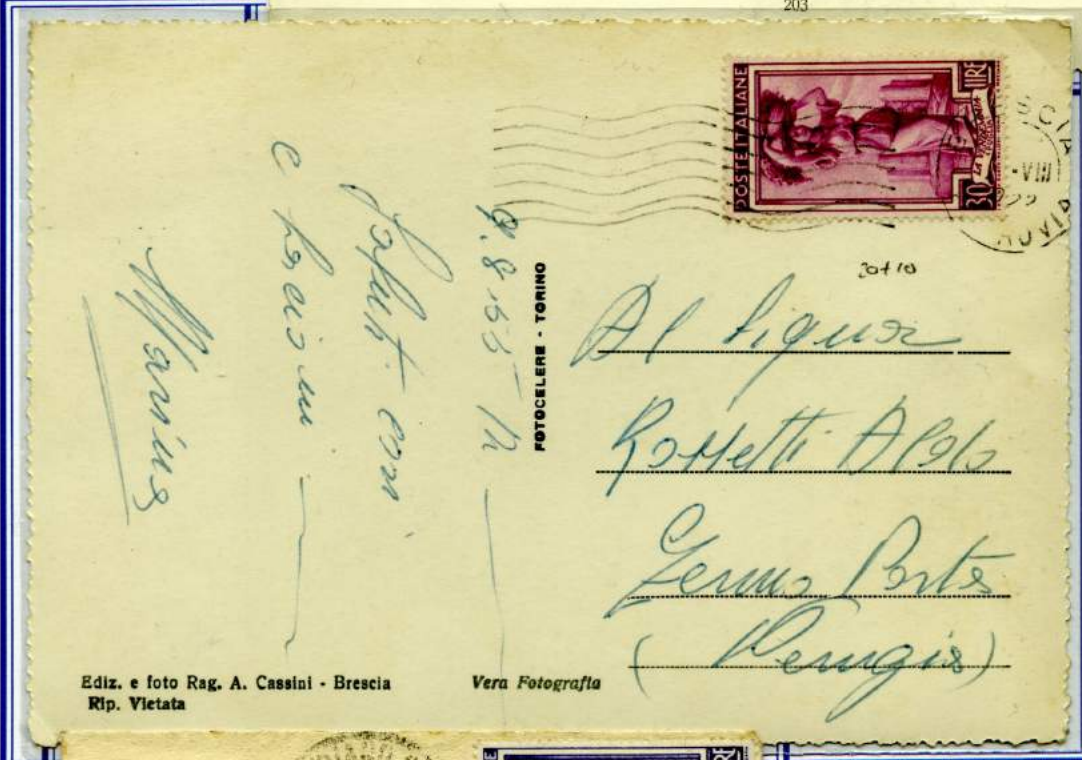 203
POSTE ITALIANE
30 LIRE
SCIA
-VIII
20+10
9.8.55
Saluti cari
e bacioni
Marina
FOTOCELERE - TORINO
Al Signor
Rossetti Aldo
Fermo Posta
(Perugia)
Ediz. e foto Rag. A. Cassini - Brescia
Rip. Vietata
Vera Fotografia